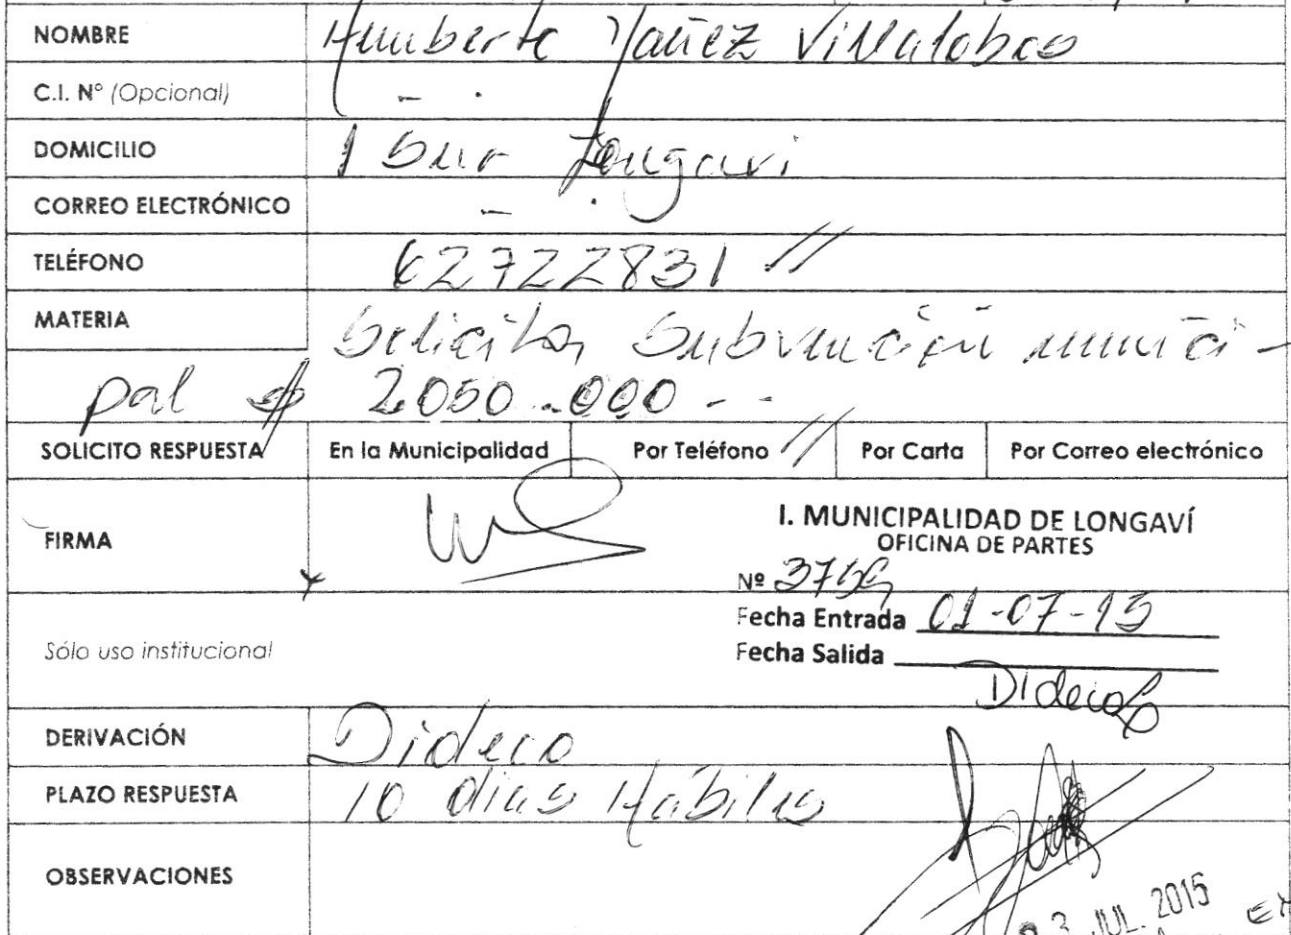 NOMBRE Humberto Yañez Villalobos
C.I. Nº (Opcional) - .
DOMICILIO 1 Sur Longaví
CORREO ELECTRÓNICO - .
TELÉFONO 62722831 //
MATERIA Solicita, Subvención munici-
pal $ 2.050.000 - -
SOLICITO RESPUESTA En la Municipalidad Por Teléfono // Por Carta Por Correo electrónico
FIRMA
I. MUNICIPALIDAD DE LONGAVÍ
OFICINA DE PARTES
Nº
Fecha Entrada 01-07-15
Fecha Salida
Sólo uso institucional
Dideco
DERIVACIÓN Dideco
PLAZO RESPUESTA 10 días Hábiles
OBSERVACIONES
JUL. 2015